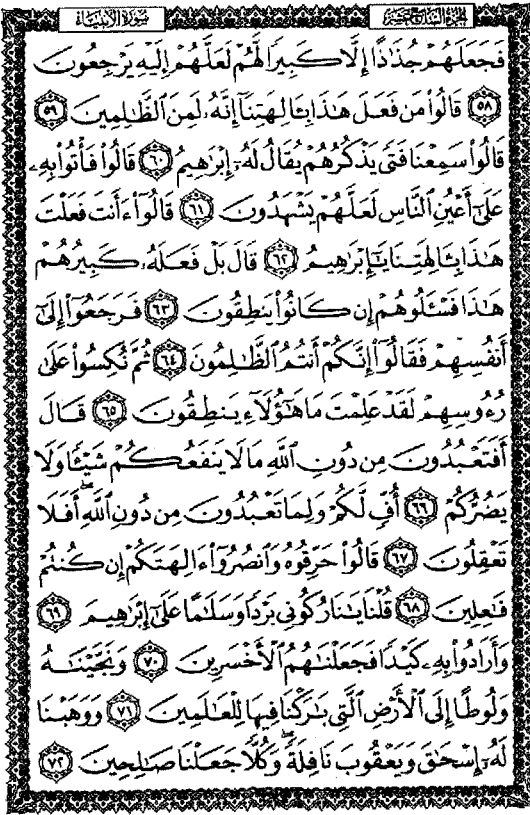 سورة الأنبياء
الجزء السابع عشر
فَجَعَلَهُمْ جُذَٰذًا إِلَّا كَبِيرًا لَّهُمْ لَعَلَّهُمْ إِلَيْهِ يَرْجِعُونَ
﴿٥٨﴾ قَالُوا۟ مَن فَعَلَ هَٰذَا بِـَٔالِهَتِنَآ إِنَّهُۥ لَمِنَ ٱلظَّٰلِمِينَ ﴿٥٩﴾
قَالُوا۟ سَمِعْنَا فَتًى يَذْكُرُهُمْ يُقَالُ لَهُۥٓ إِبْرَٰهِيمُ ﴿٦٠﴾ قَالُوا۟ فَأْتُوا۟ بِهِۦ
عَلَىٰٓ أَعْيُنِ ٱلنَّاسِ لَعَلَّهُمْ يَشْهَدُونَ ﴿٦١﴾ قَالُوٓا۟ ءَأَنتَ فَعَلْتَ
هَٰذَا بِـَٔالِهَتِنَا يَٰٓإِبْرَٰهِيمُ ﴿٦٢﴾ قَالَ بَلْ فَعَلَهُۥ كَبِيرُهُمْ
هَٰذَا فَسْـَٔلُوهُمْ إِن كَانُوا۟ يَنطِقُونَ ﴿٦٣﴾ فَرَجَعُوٓا۟ إِلَىٰٓ
أَنفُسِهِمْ فَقَالُوٓا۟ إِنَّكُمْ أَنتُمُ ٱلظَّٰلِمُونَ ﴿٦٤﴾ ثُمَّ نُكِسُوا۟ عَلَىٰ
رُءُوسِهِمْ لَقَدْ عَلِمْتَ مَا هَٰٓؤُلَآءِ يَنطِقُونَ ﴿٦٥﴾ قَالَ
أَفَتَعْبُدُونَ مِن دُونِ ٱللَّهِ مَا لَا يَنفَعُكُمْ شَيْـًٔا وَلَا
يَضُرُّكُمْ ﴿٦٦﴾ أُفٍّ لَّكُمْ وَلِمَا تَعْبُدُونَ مِن دُونِ ٱللَّهِ ۖ أَفَلَا
تَعْقِلُونَ ﴿٦٧﴾ قَالُوا۟ حَرِّقُوهُ وَٱنصُرُوٓا۟ ءَالِهَتَكُمْ إِن كُنتُمْ
فَٰعِلِينَ ﴿٦٨﴾ قُلْنَا يَٰنَارُ كُونِى بَرْدًا وَسَلَٰمًا عَلَىٰٓ إِبْرَٰهِيمَ ﴿٦٩﴾
وَأَرَادُوا۟ بِهِۦ كَيْدًا فَجَعَلْنَٰهُمُ ٱلْأَخْسَرِينَ ﴿٧٠﴾ وَنَجَّيْنَٰهُ
وَلُوطًا إِلَى ٱلْأَرْضِ ٱلَّتِى بَٰرَكْنَا فِيهَا لِلْعَٰلَمِينَ ﴿٧١﴾ وَوَهَبْنَا
لَهُۥٓ إِسْحَٰقَ وَيَعْقُوبَ نَافِلَةً ۖ وَكُلًّا جَعَلْنَا صَٰلِحِينَ ﴿٧٢﴾